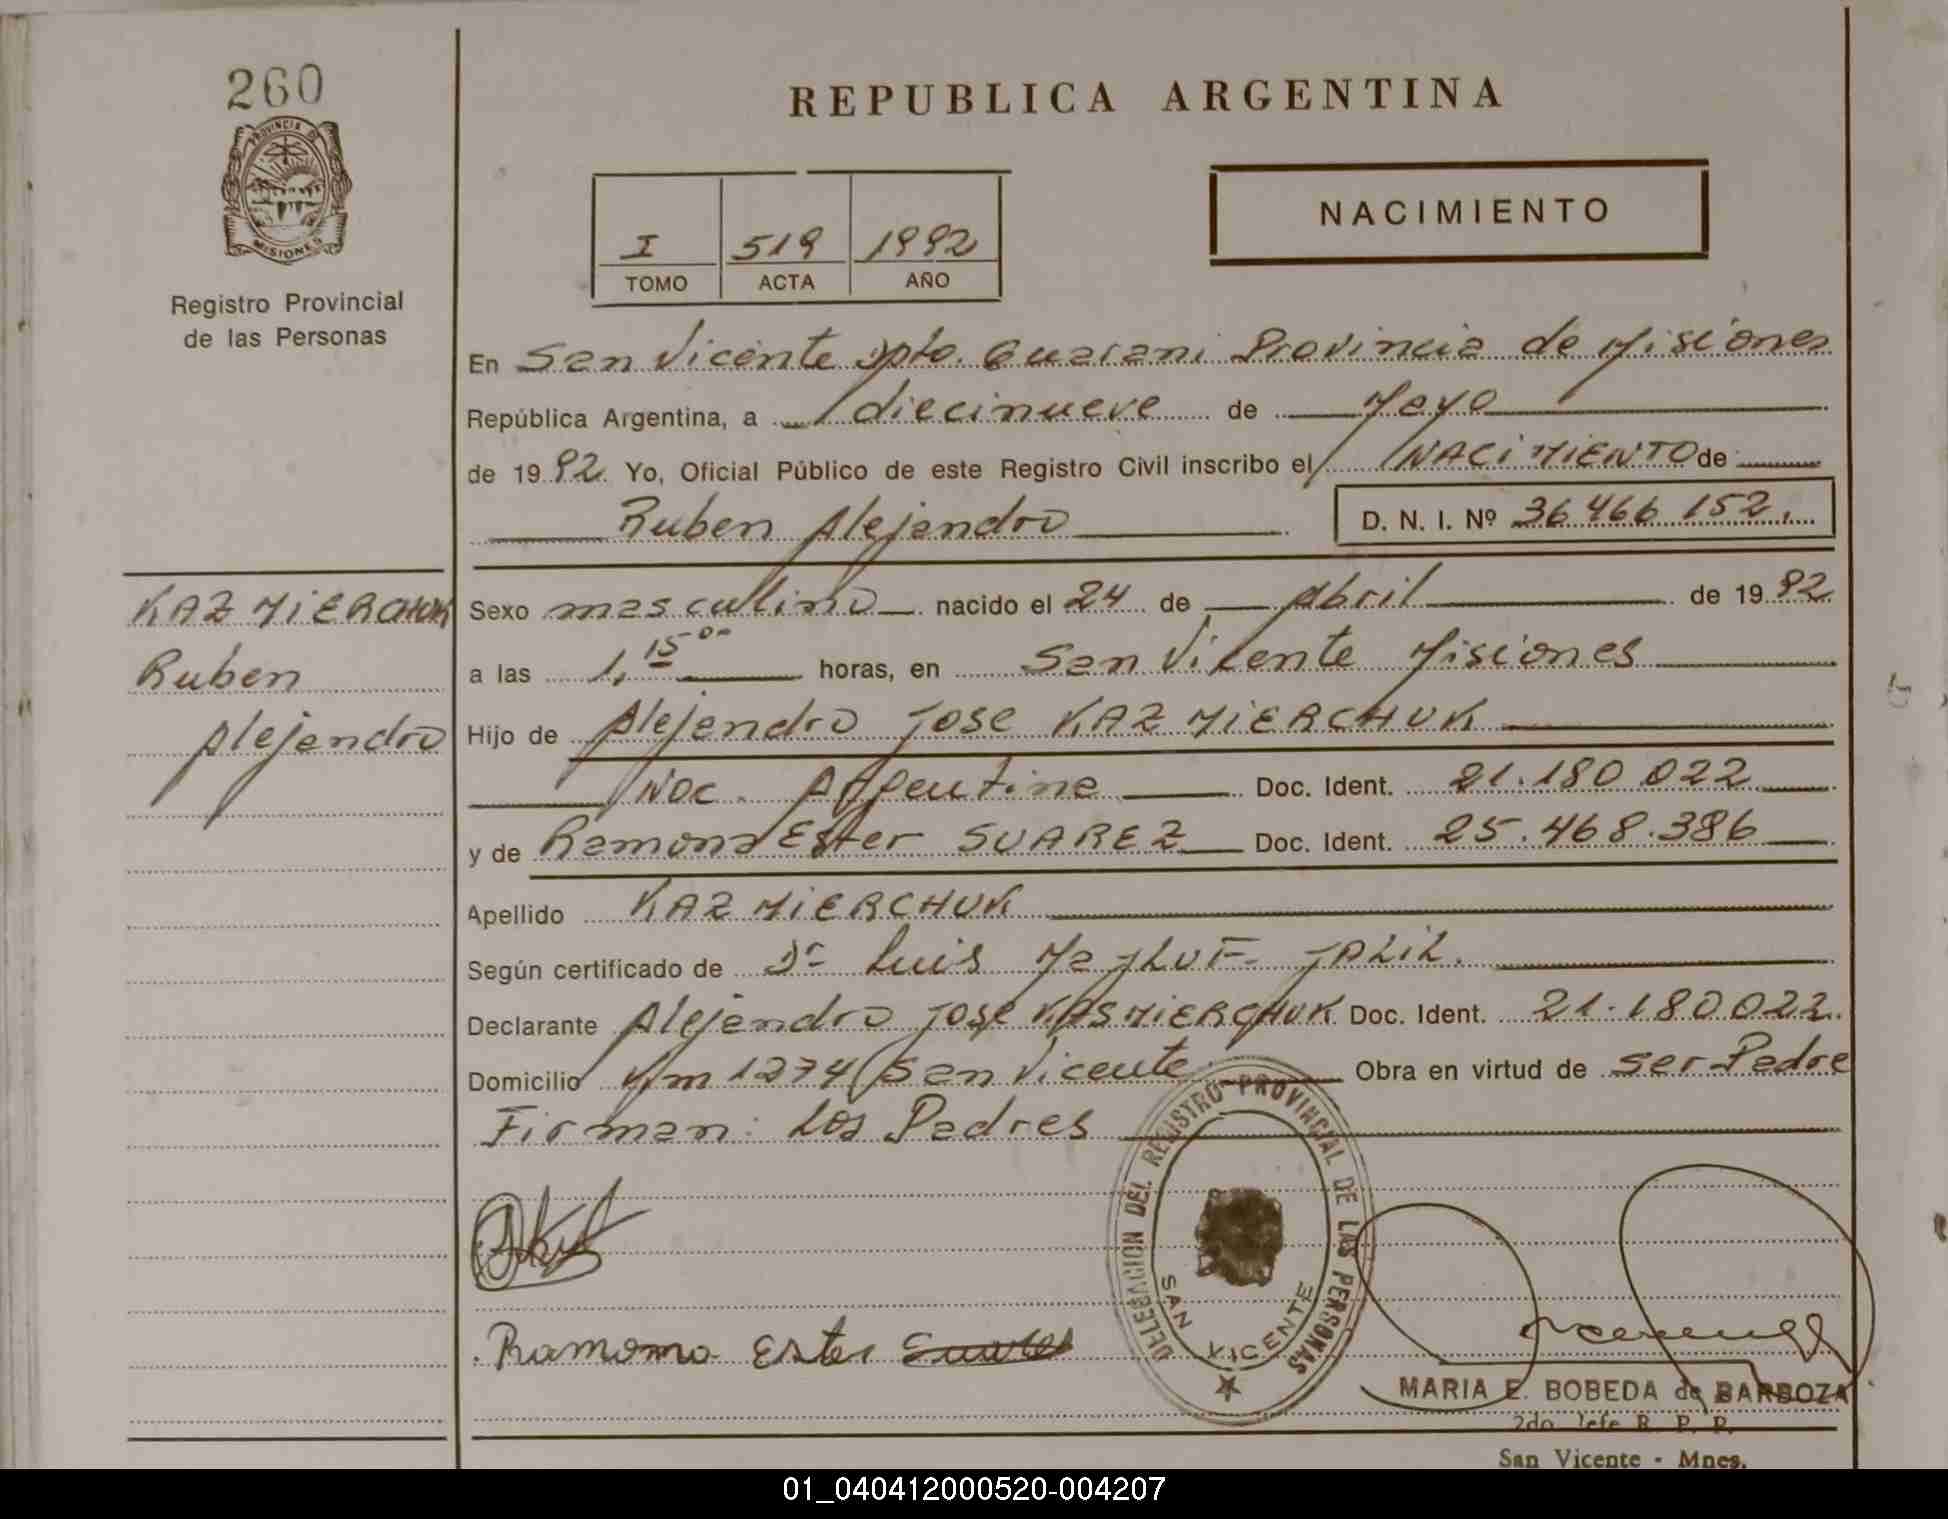 260
PROVINCIA D
MISIONES
Registro Provincial
de las Personas
REPUBLICA ARGENTINA
I 519 1992
TOMO ACTA AÑO
NACIMIENTO
En San Vicente Dpto. Guarani Provincia de Misiones
República Argentina, a diecinueve de Mayo
de 1992. Yo, Oficial Público de este Registro Civil inscribo el NACIMIENTO de
Ruben Alejandro D. N. I. Nº 36.466.152.
KAZMIERCHUK
Ruben
Alejandro
Sexo masculino nacido el 24 de Abril de 1992
a las 1,15 00 horas, en San Vicente Misiones
Hijo de Alejandro Jose KAZMIERCHUK
Nac. Argentina Doc. Ident. 21.180.022
y de Ramona Ester SUAREZ Doc. Ident. 25.468.386
Apellido KAZMIERCHUK
Según certificado de Dr Luis JALIL.
Declarante Alejandro Jose KASMIERCHUK Doc. Ident. 21.180.022.
Domicilio Km 1274 San Vicente Obra en virtud de ser Padre
Firman: Los Padres
DELEGACION DEL REGISTRO PROVINCIAL DE LAS PERSONAS
SAN VICENTE
Ramona Ester
MARIA E. BOBEDA de BARBOZA
2do. Jefe R. P. P.
San Vicente - Mnes.
01_040412000520-004207